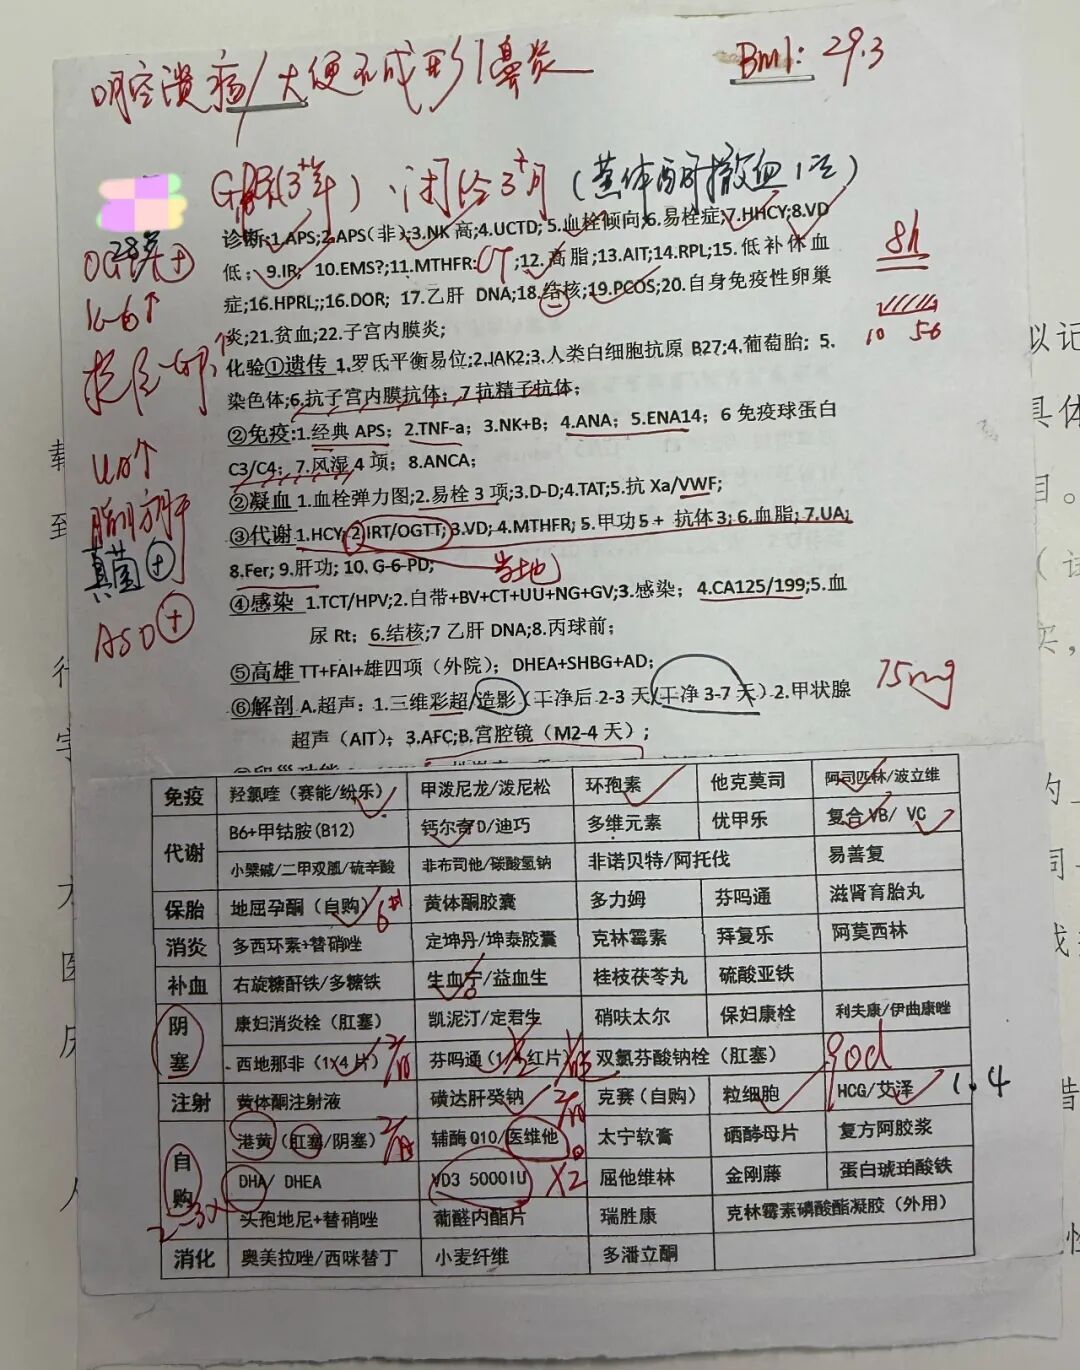 口腔溃疡/大便不成形/鼻炎
BmI: 29.3
28岁
诊断:1.APS;2.APS(非);3.NK 高;4.UCTD; 5.血栓倾向;6.易栓症;7.HHCY;8.VD
低; 9.IR; 10.EMS?;11.MTHFR: CT ;12.高脂;13.AIT;14.RPL;15. 低补体血
症;16.HPRL;;16.DOR; 17.乙肝 DNA;18.结核;19.PCOS;20.自身免疫性卵巢
炎;21.贫血;22.子宫内膜炎;
8h
10 56
IL-6↑
化验①遗传 1.罗氏平衡易位;2.JAK2;3.人类白细胞抗原 B27;4.葡萄胎; 5.
染色体;6.抗子宫内膜抗体; 7 抗精子抗体;
②免疫:1.经典 APS; 2.TNF-a; 3.NK+B; 4.ANA; 5.ENA14; 6 免疫球蛋白
C3/C4; 7.风湿 4 项; 8.ANCA;
UA↑
②凝血 1.血栓弹力图;2.易栓 3 项;3.D-D;4.TAT;5.抗 Xa/VWF;
脂肪肝
③代谢 1.HCY;2)IRT/OGTT;3.VD; 4.MTHFR; 5.甲功 5+ 抗体 3; 6.血脂; 7.UA;
8.Fer; 9.肝功; 10. G-6-PD; 当地
真菌 +
④感染 1.TCT/HPV;2.白带+BV+CT+UU+NG+GV;3.感染; 4.CA125/199;5.血
尿 Rt; 6.结核;7 乙肝 DNA;8.丙球前;
ASO +
⑤高雄 TT+FAI+雄四项（外院）; DHEA+SHBG+AD;
75mg
⑥解剖 A.超声: 1.三维彩超/造影（干净后 2-3 天/干净 3-7 天）2.甲状腺
超声（AIT）; 3.AFC;B.宫腔镜（M2-4 天）;
免疫 羟氯喹（赛能/纷乐） 甲泼尼龙/泼尼松 环孢素 他克莫司 阿司匹林/波立维
代谢 B6+甲钴胺(B12) 钙尔奇D/迪巧 多维元素 优甲乐 复合VB/ VC
小檗碱/二甲双胍/硫辛酸 非布司他/碳酸氢钠 非诺贝特/阿托伐 易善复
保胎 地屈孕酮（自购） 黄体酮胶囊 多力姆 芬吗通 滋肾育胎丸
消炎 多西环素+替硝唑 定坤丹/坤泰胶囊 克林霉素 拜复乐 阿莫西林
补血 右旋糖酐铁/多糖铁 生血宁/益血生 桂枝茯苓丸 硫酸亚铁
阴塞 康妇消炎栓（肛塞） 凯泥汀/定君生 硝呋太尔 保妇康栓 利夫康/伊曲康唑
西地那非（1×4 片） 芬吗通（1/2红片） 双氯芬酸钠栓（肛塞） qod
注射 黄体酮注射液 磺达肝癸钠 克赛（自购） 粒细胞 HCG/艾泽 1.4
自购 港黄（肛塞/阴塞） 辅酶Q10/医维他 太宁软膏 硒酵母片 复方阿胶浆
DHA/ DHEA VD3 5000IU X2 屈他维林 金刚藤 蛋白琥珀酸铁
头孢地尼+替硝唑 葡醛内酯片 瑞胜康 克林霉素磷酸酯凝胶（外用）
消化 奥美拉唑/西咪替丁 小麦纤维 多潘立酮